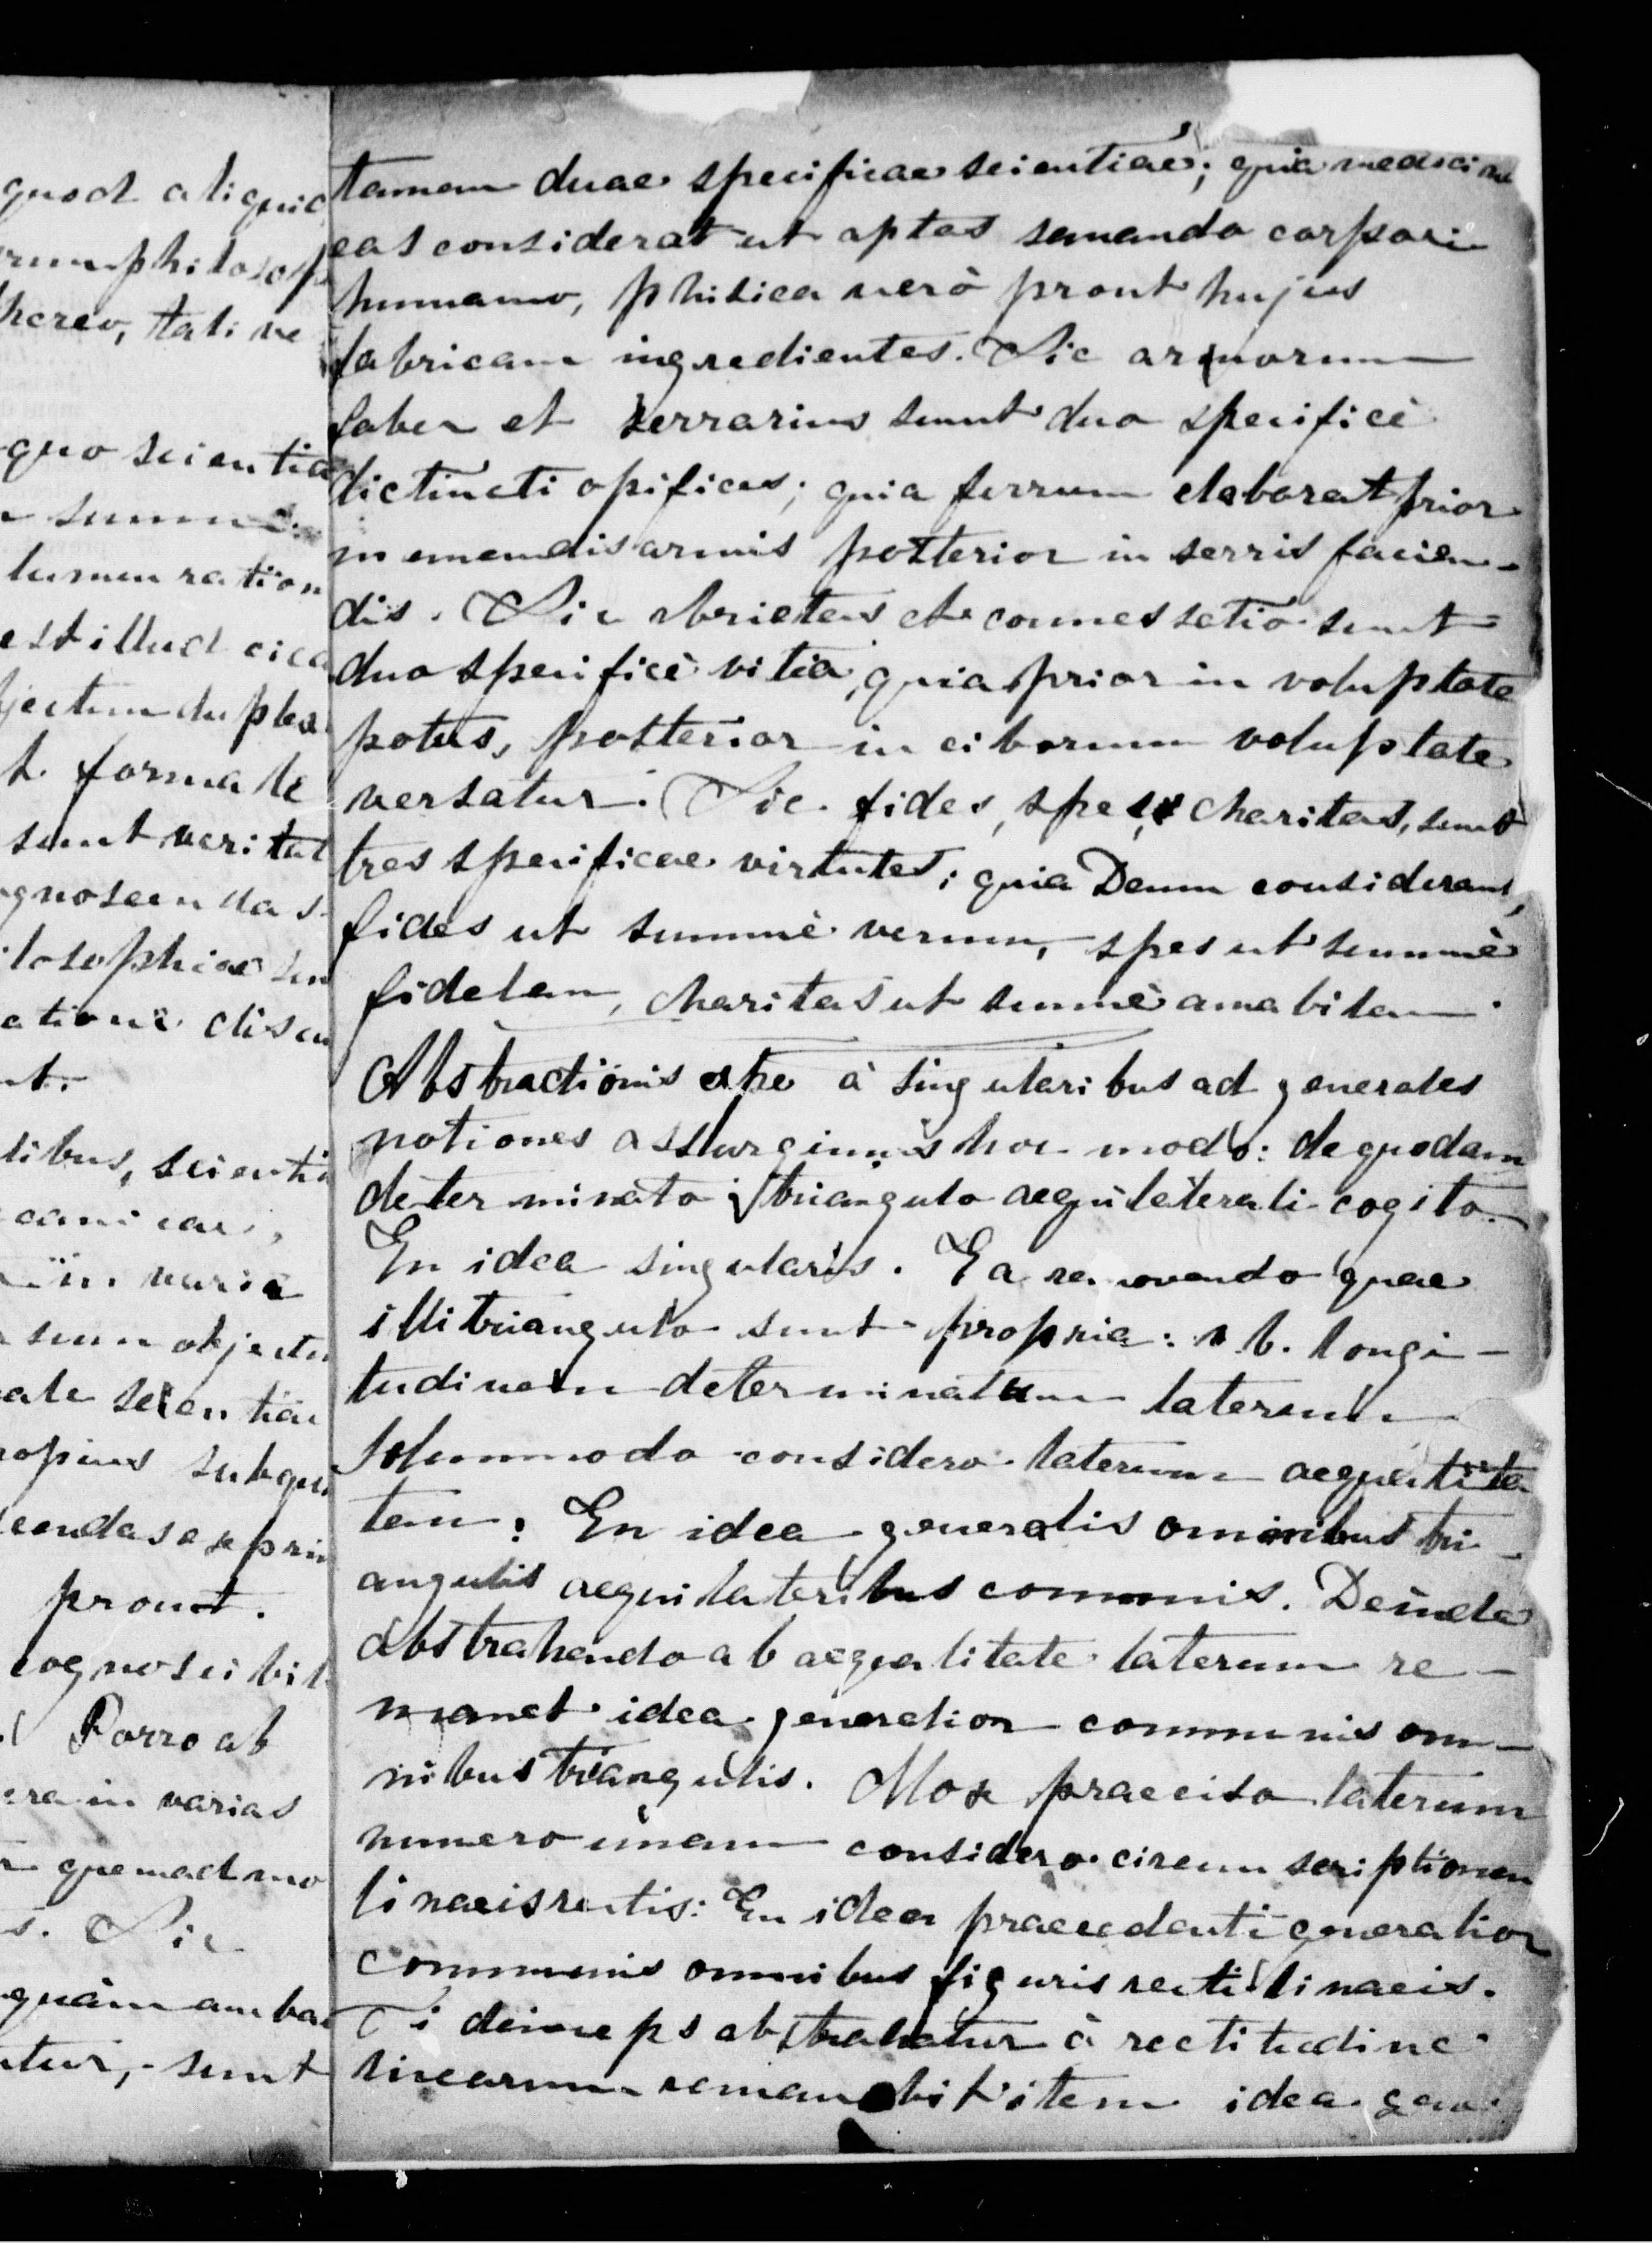 quod aliquid
rum philosoph
hereo, tali ve
quo scientia
summ
lumen ration
est illud circa
jectum duplex
t. formale
sunt veritat
gnoscendas
ilosophiae sun
atione discu
nt.
libus, scienti
in varia
suum objectu
ale scientiae
ropius subqu
cendas exprim
prout.
cognoscibil
Porro ab
era in varias
quemadmo
s. Sic
quam amba
ntur, sunt
tamen duae specificae scientiae; quia medicina
eas considerat ut aptas sanando corpori
humano, phisica verò prout hujus
fabricam ingredientes. Sic armorum
faber et serrarius sunt duo specificè
dictincti opifices; quia ferrum elaborat prior
in emendis armis posterior in serris facien-
dis. Sic ebrietas et comessatio sunt
duo specificè vitia, quia prior in voluptate
potus, posterior in ciborum voluptate
versatur. Sic fides, spes, charitas, sunt
tres specificae virtutes; quia Deum considerant,
fides ut summè verum, spes ut summè
fidelem, charitas ut summè amabilem.
Abstractionis ope à singularibus ad generales
notiones assurgimus hoc modo: de quodam
determinato triangulo aequilaterali cogito.
En idea singularis. Ea removendo quae
illi triangulo sunt propria: v. b. longi-
tudinem determinatam laterum
solummodo considero laterum aequalita
tem: En idea generalis omnibus tri-
angulis aequilateribus communis. Deinde
abstrahendo ab aequalitate laterum re-
manet idea generalior communis om-
nibus triangulis. Mox praeciso laterum
numero unam considero circumscriptionem
lineis rectis: En idea praecedenti generalior
communis omnibus figuris rectilineis.
Si deinceps abstrahatur à rectitudine
linearum remanebit item idea gene